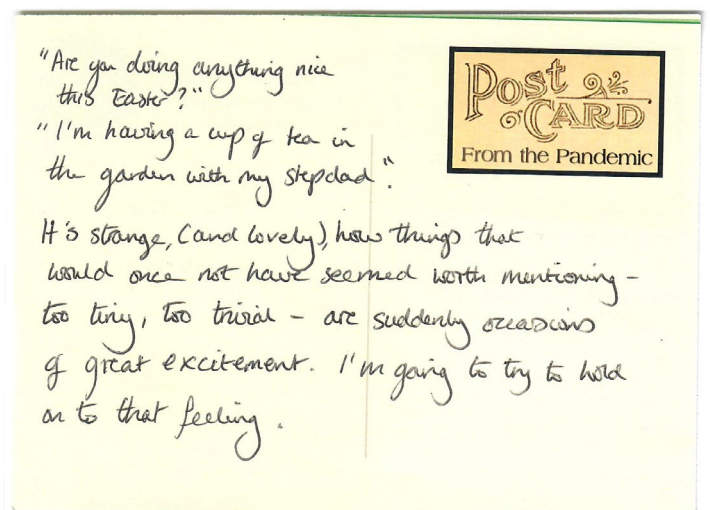 "Are you doing anything nice
this Easter?"
"I'm having a cup of tea in
the garden with my stepdad".
It's strange, (and lovely), how things that
would once not have seemed worth mentioning –
too tiny, too trivial – are suddenly occasions
of great excitement. I'm going to try to hold
on to that feeling.
POST
CARD
From the Pandemic